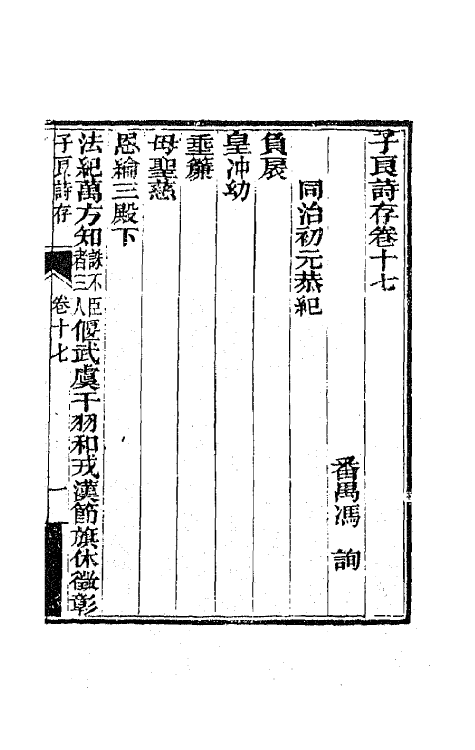 子良詩存卷十七
番禺馮　詢
同治初元恭紀
負扆
皇冲幼
垂簾
母聖慈
恩綸三殿下
法紀萬方知誅不臣者三人偃武虞干羽和戎漢節旗休徵彰
子良詩存　卷十七　一